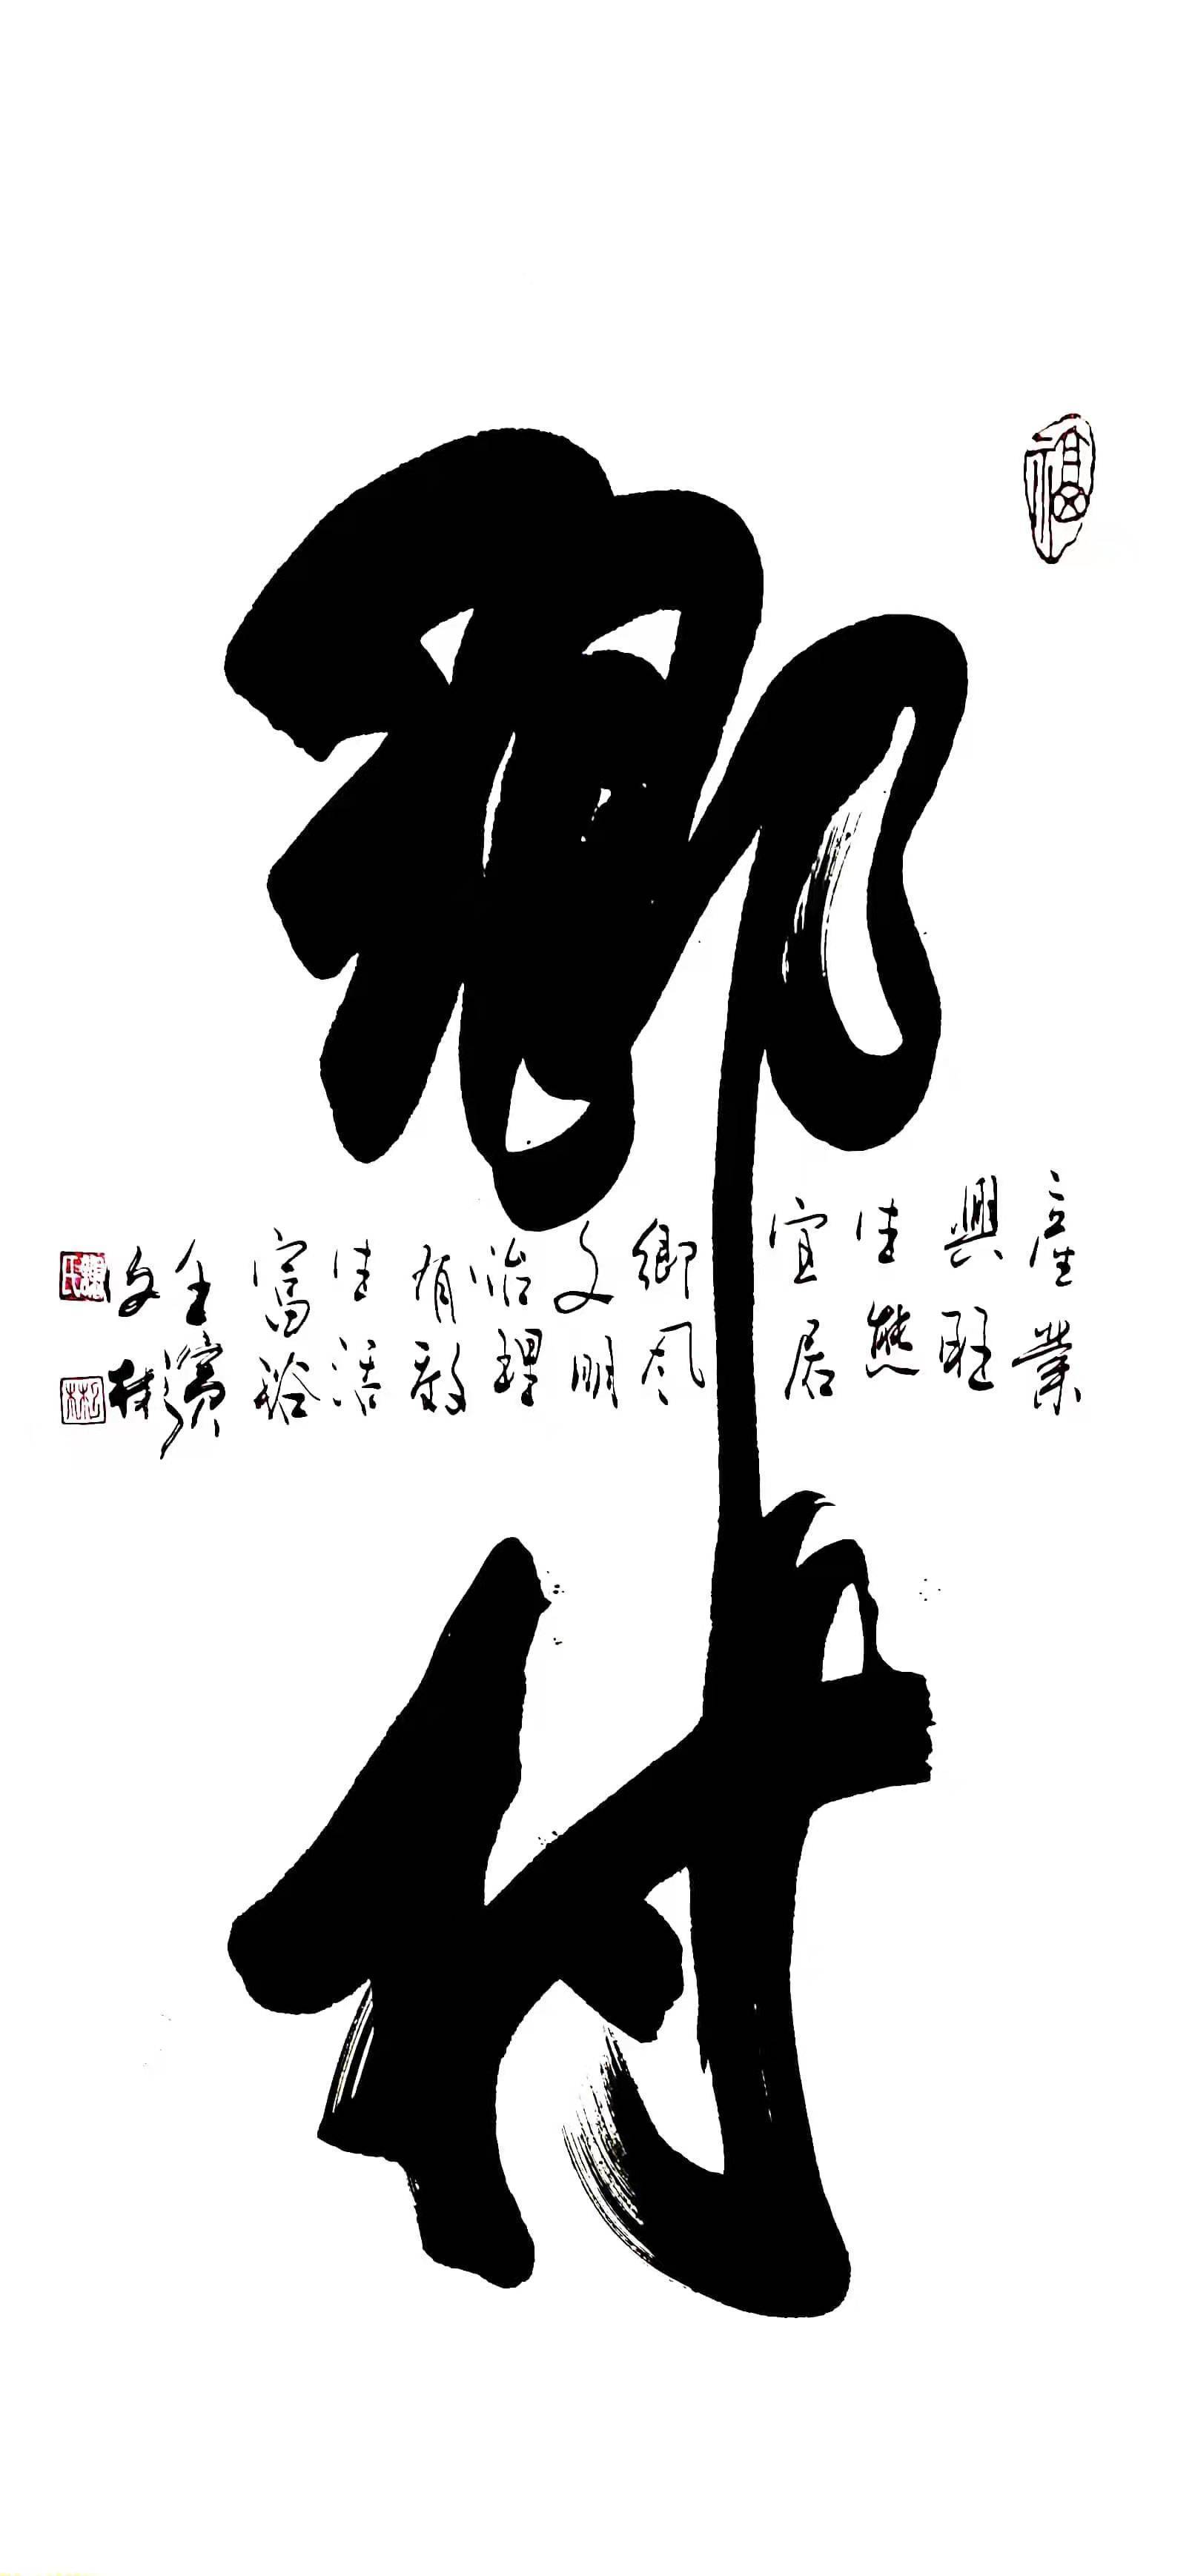 福
鄉村
產業
興旺
生態
宜居
鄉风
文明
治理
有效
生活
富裕